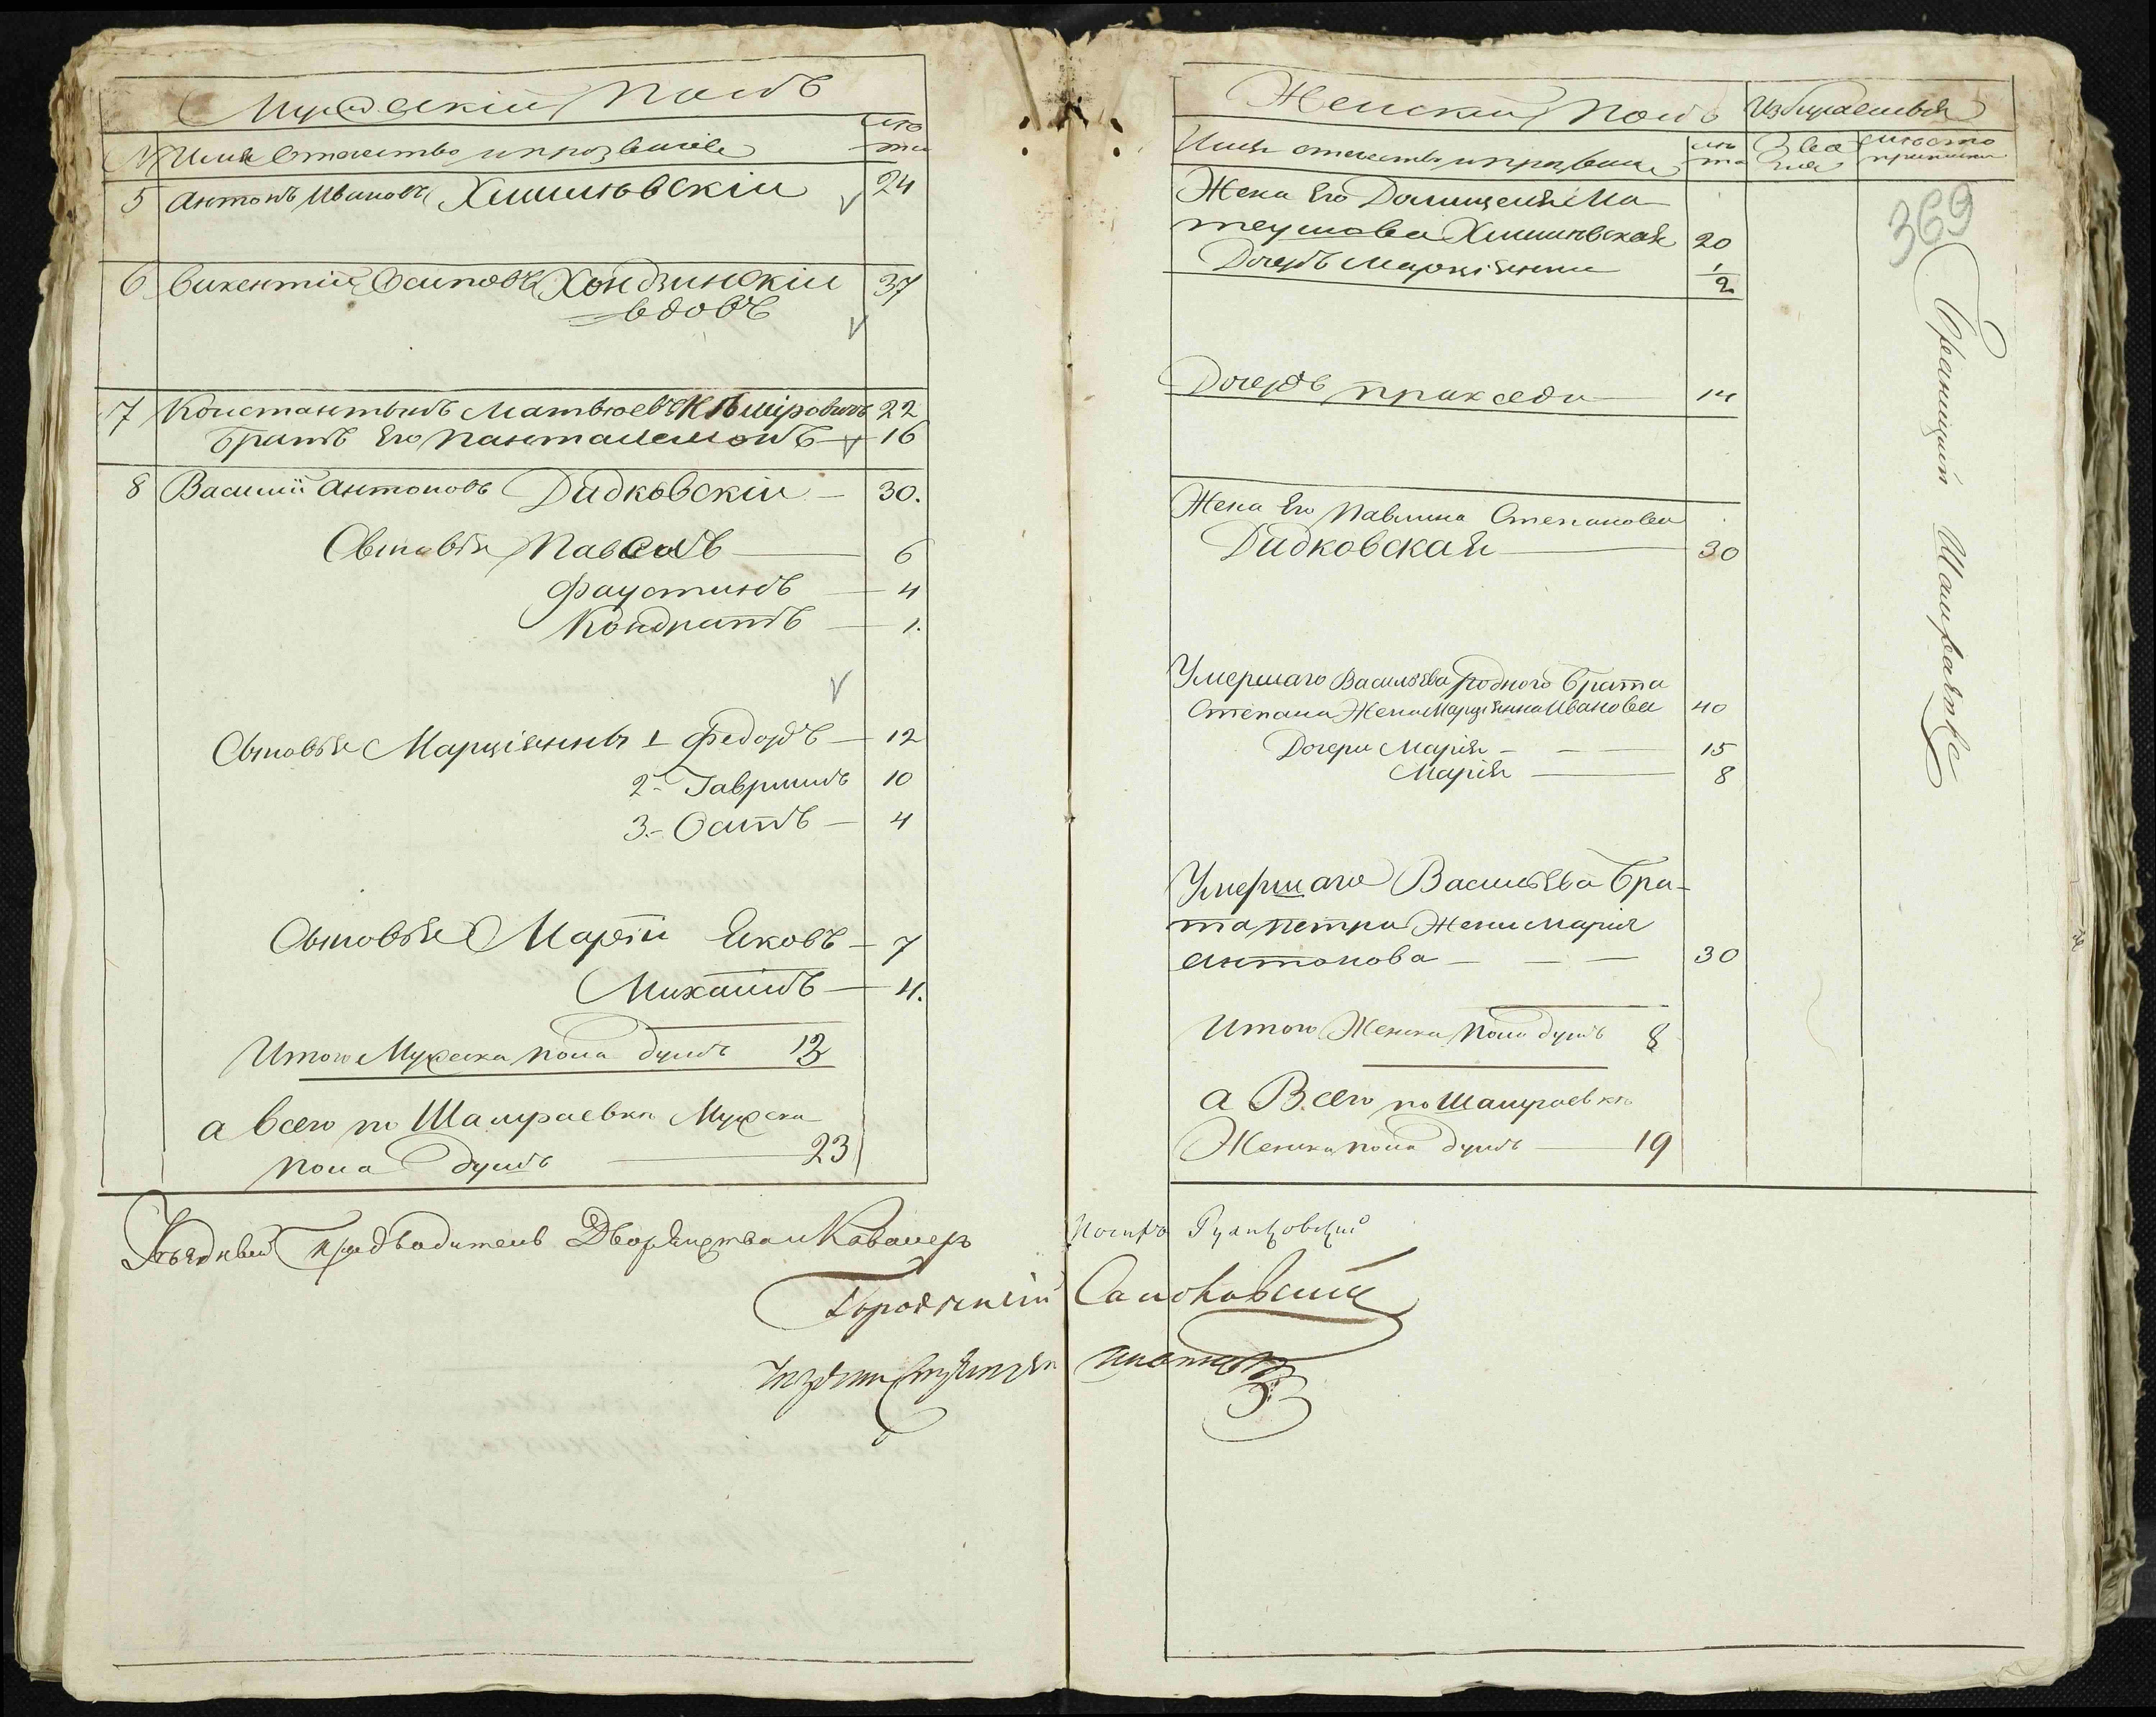 Мужескій Полъ
№ Имя Отечество и прозваніе лѣта
5 Антонъ Ивановъ Хмилювскій 24
6 Викентій Осиповъ Хондзинскій 37
вдовъ
7 Константынъ Матвѣевъ 22
Братъ Его Панталемонъ 16
8 Василій Антоновъ Дидковскій 30.
Сыновья Павелъ 6
Фаустинъ 4
Кондратъ 1.
Сыновья Марціянны 1 Федоръ 12
2. Гаврилъ 10
3. Осипъ 4
Сыновья Маріи Яковъ 7
Михаилъ 4.
Итого Мужеска пола душъ 13
а всего по Шамраевки Мужеска
пола душъ 23
Женскій Полъ Избираемыя
Имя отечество и прозваніе лѣта Званія мѣсто приписки
369
Жена Его Доминцеля Ма-
теушова Хмилювская 20
Дочерь Маркіянна 1/2
Дочерь Пракседа 14
Жена Его Павлина Степанова
Дидковская 30
Умершаго Васильева родного брата
Степана Жена Марціянна Иванова 40
Дочери Марія 15
Марія 8
Умершаго Васильева бра-
та Петра Жена Марія
Антонова 30
Итого Женска пола душъ 8
а Всего по Шамраевкѣ
Женска пола душъ 19
Шамраевке
Уѣздный Предводитель Дворянства и Кавалеръ